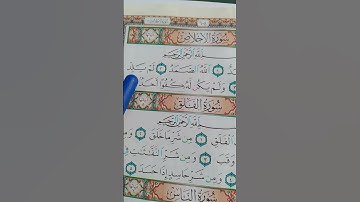 سُورَةُ الْإِخْلَاصِ
بِسْمِ اللَّهِ الرَّحْمَٰنِ الرَّحِيمِ
اللَّهُ الصَّمَدُ ٢ لَمْ يَلِدْ
وَلَمْ يَكُن لَّهُ كُفُوًا أَحَدٌ
سُورَةُ الْفَلَقِ
بِسْمِ اللَّهِ الرَّحْمَٰنِ الرَّحِيمِ
الْفَلَقِ ١ مِن شَرِّ مَا خَلَقَ ٢
وَقَبَ ٣ وَمِن شَرِّ النَّفَّاثَاتِ فِي
وَمِن شَرِّ حَاسِدٍ إِذَا حَسَدَ ٥
سُورَةُ النَّاسِ